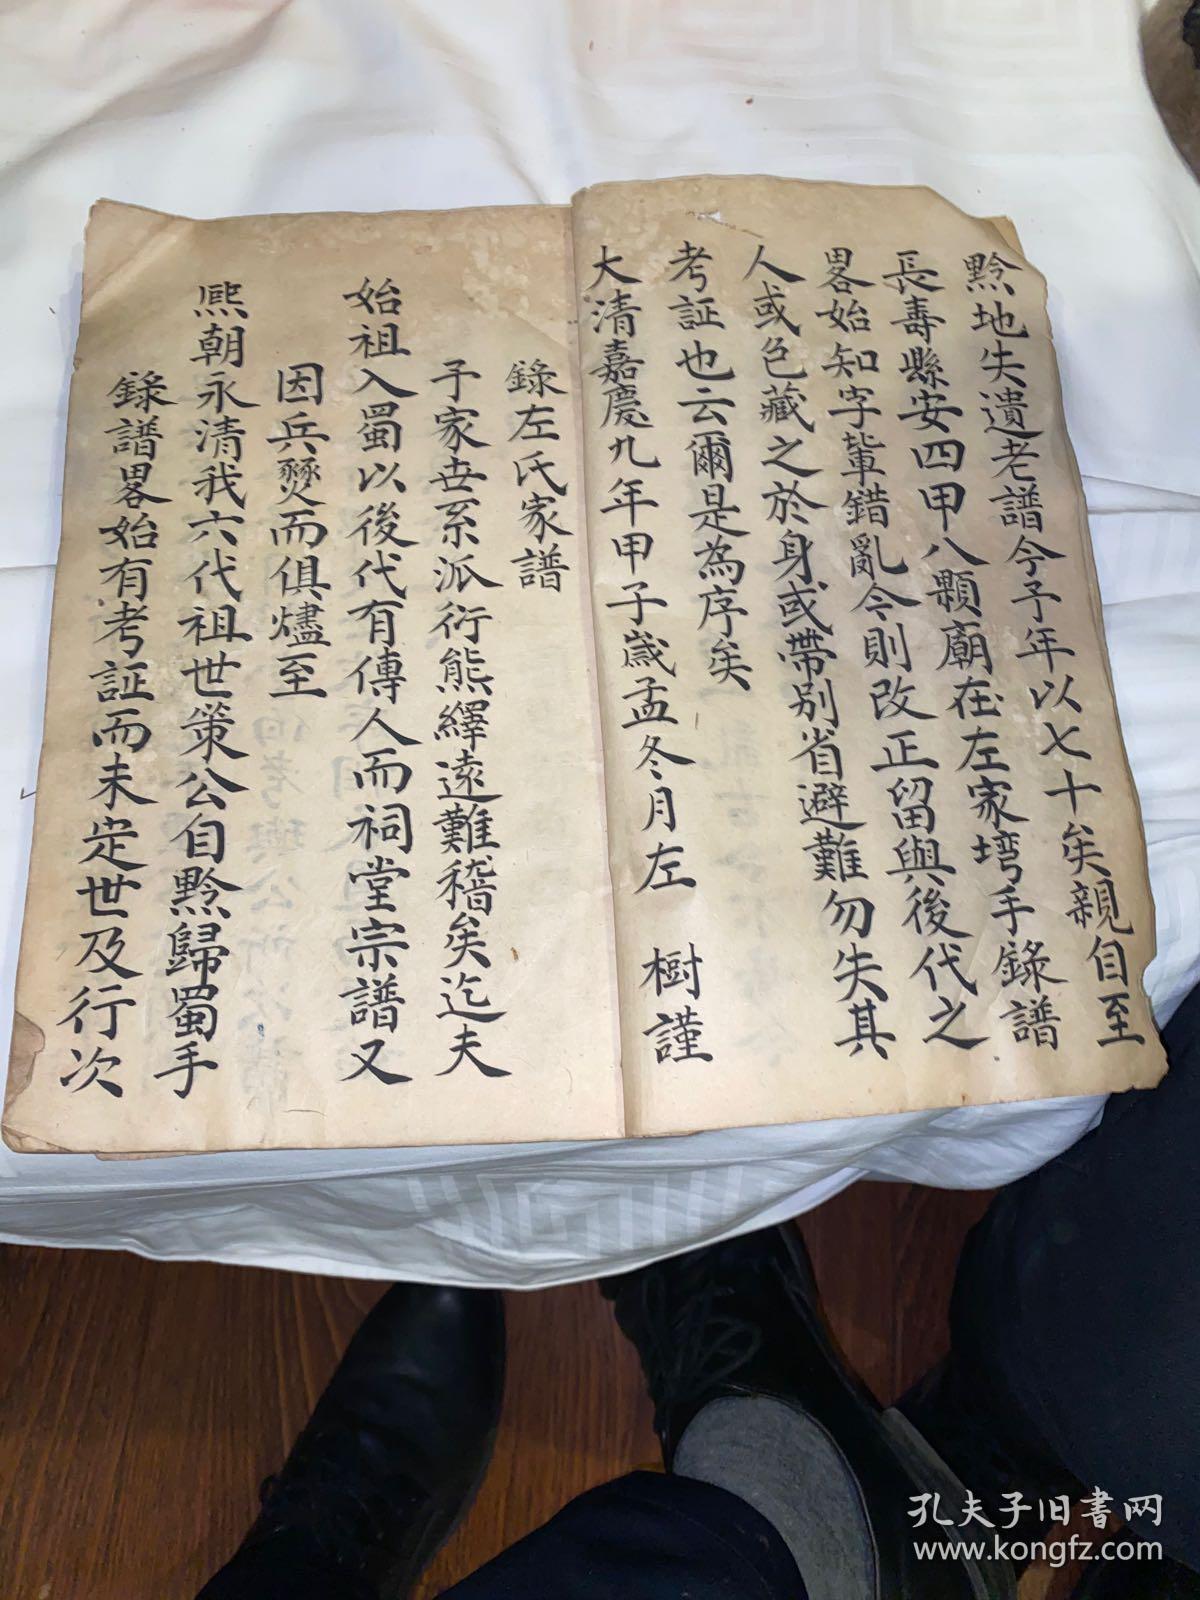 黔地失遺老譜今予年以七十矣親自至
長壽縣安四甲八顆廟在左家塆手錄譜
畧始知字輩錯亂今則改正留與後代之
人或包藏之於身或帶別省避難勿失其
考証也云爾是為序矣
大清嘉慶九年甲子歲孟冬月左 樹謹
錄左氏家譜
予家世系派衍熊繹遠難稽矣迄夫
始祖入蜀以後代有傳人而祠堂宗譜又
因兵燹而俱燼至
熙朝永清我六代祖世策公自黔歸蜀手
錄譜畧始有考証而未定世及行次
孔夫子旧书网
www.kongfz.com